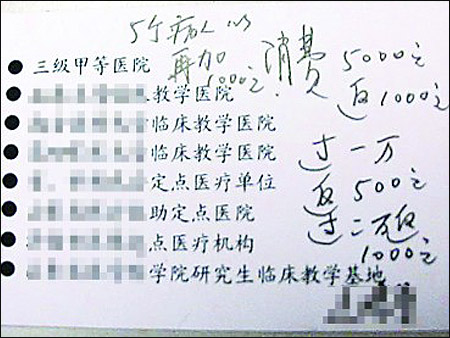 5个病人以
再加 消费 5000元
三级甲等医院 1000元
教学医院 返1000元
临床教学医院
临床教学医院 过一万
定点医疗单位 返500元
助定点医院 过二万返
点医疗机构 1000元
学院研究生临床教学基地